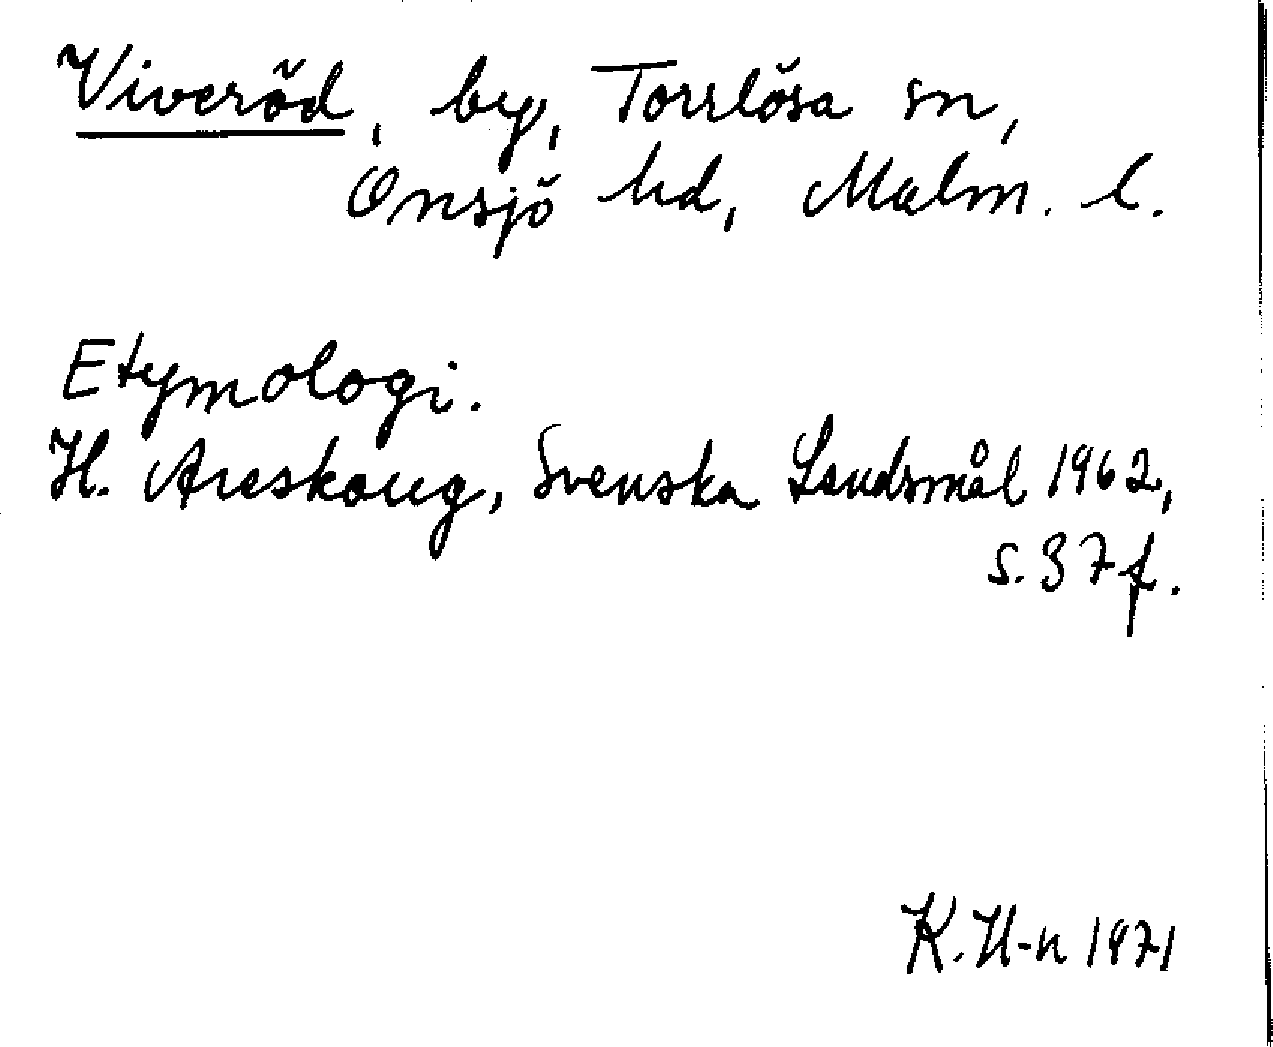 Viveröd, by, Torrlösa sn,
Onsjö hd, Malm. l.
Etymologi.
H. Areskoug, Svenska Landsmål 1962,
s. 37 f.
K. H-n 1971